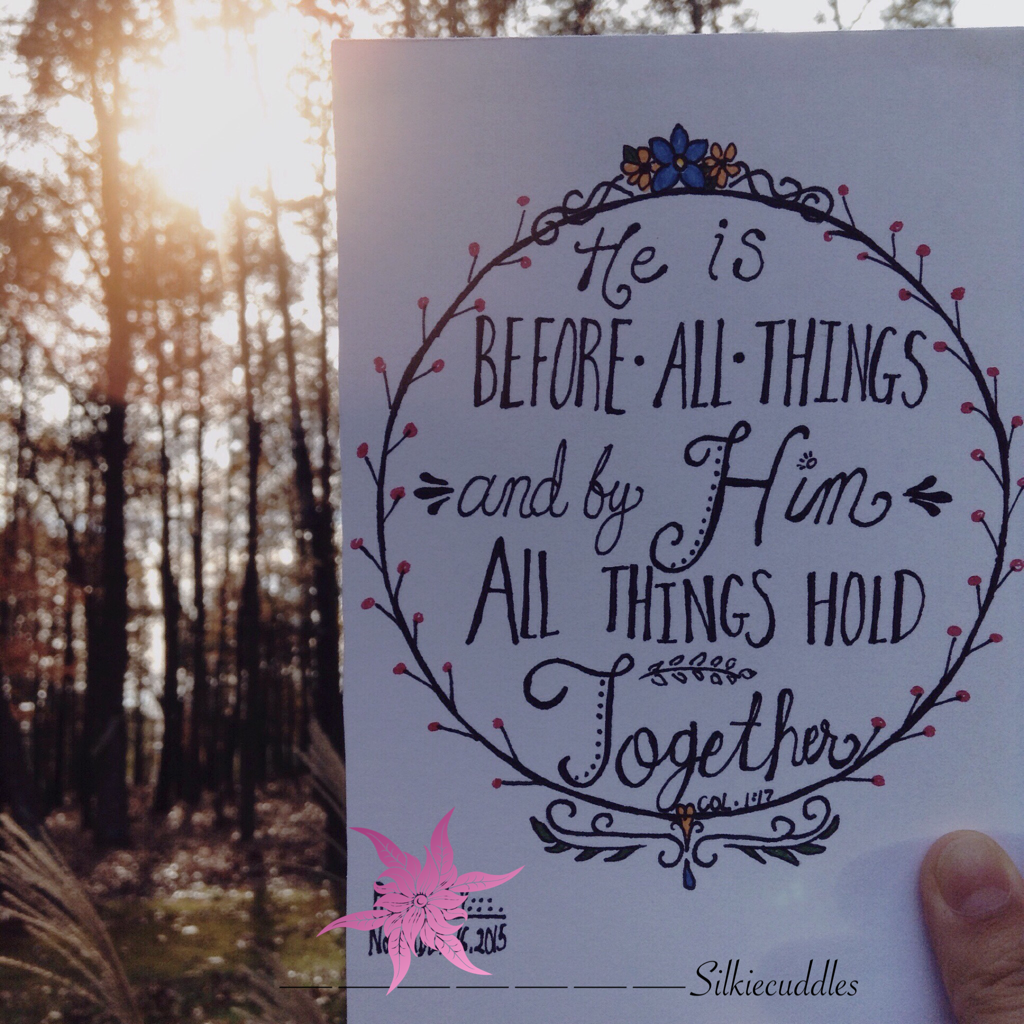 He is
BEFORE · ALL · THINGS
and by Him
ALL THINGS HOLD
Together
COL. 1:17
2015
Silkiecuddles